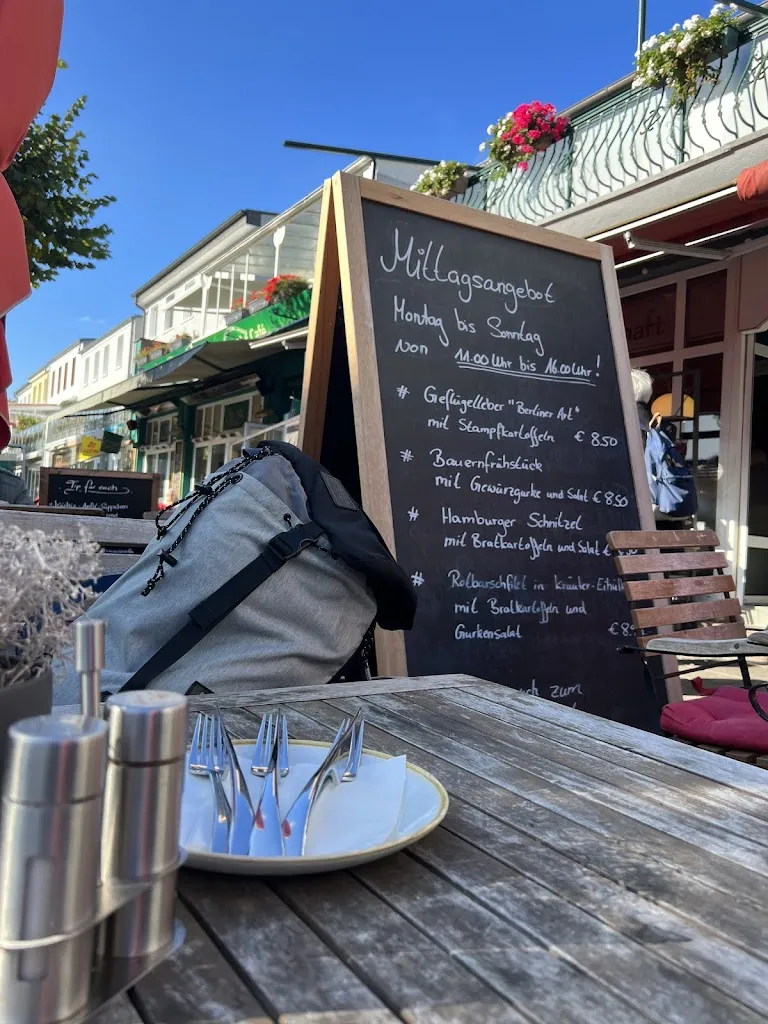 Mittagsangebot
Montag bis Sonntag
von 11.00 Uhr bis 16.00 Uhr!
# Geflügelleber "Berliner Art"
mit Stampfkartoffeln € 8.50
# Bauernfrühstück
mit Gewürzgurke und Salat € 8.50
# Hamburger Schnitzel
mit Bratkartoffeln und Salat €
# Rotbarschfilet in Kräuter-Eihüll
mit Bratkartoffeln und
Gurkensalat € 8.
zum
Café